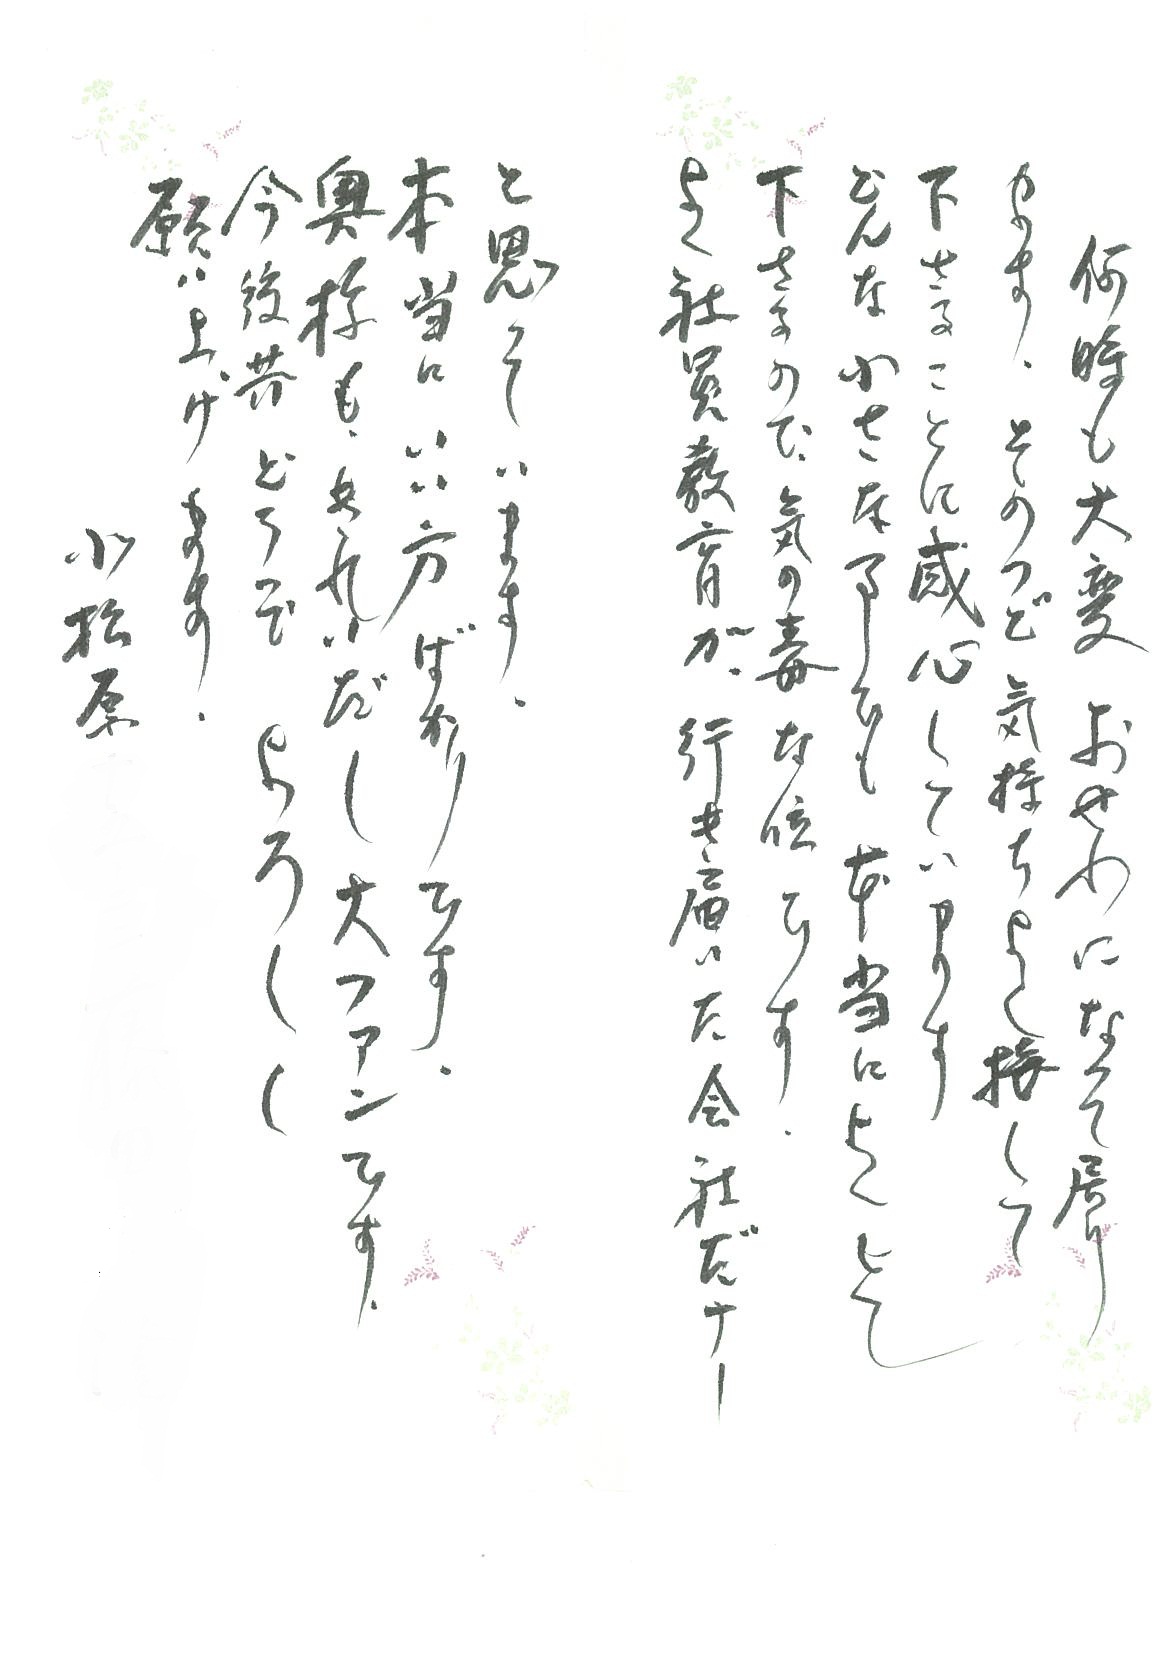 何時も大変おせわになって居り
ます．そのつど気持ちよく接して
下さることに感心しています
どんな小さな事でも本当によくして
下さるので、気の毒な位です．
よく社員教育が、行き届いた会社だナー
と思っています．
本当にいい方ばかりです．
奥様も、きれいだし大ファンです．
今後共どうぞよろしく
願い上げます．
小松原